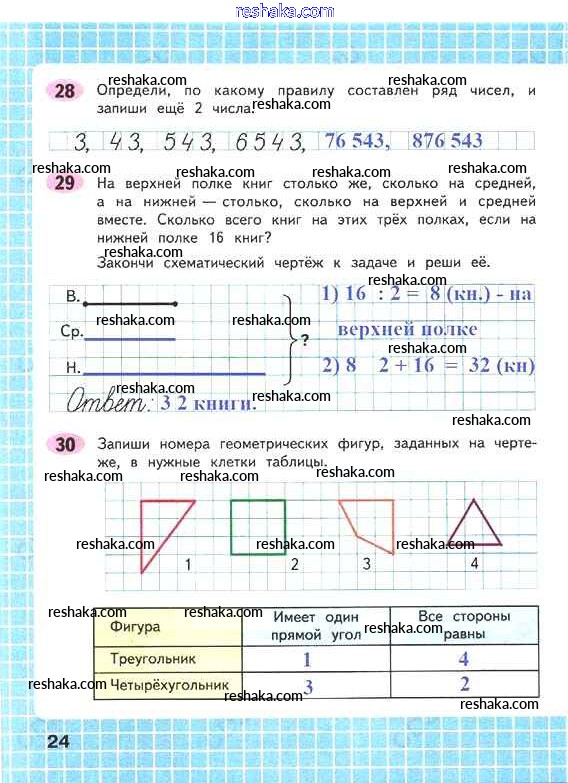 reshaka.com
28 Определи, по какому правилу составлен ряд чисел, и
запиши ещё 2 числа.
reshaka.com reshaka.com
3, 43, 543, 6543, 76 543, 876 543
reshaka.com reshaka.com reshaka.com
29 На верхней полке книг столько же, сколько на средней,
а на нижней — столько, сколько на верхней и средней
вместе. Сколько всего книг на этих трёх полках, если на
нижней полке 16 книг?
reshaka.com
Закончи схематический чертёж к задаче и реши её.
В. 1) 16 : 2 = 8 (кн.) - на
reshaka.com reshaka.com reshaka.com
Ср. ? верхней полке
Н. 2) 8 2 + 16 = 32 (кн)
reshaka.com
Ответ: 3 2 книги.
reshaka.com
30 Запиши номера геометрических фигур, заданных на черте-
же, в нужные клетки таблицы.
reshaka.com reshaka.com
reshaka.com reshaka.com reshaka.com
1 2 3 4
reshaka.com reshaka.com reshaka.com
Фигура Имеет один прямой угол Все стороны равны
reshaka.com
Треугольник 1 4
Четырёхугольник 3 2
reshaka.com reshaka.com reshaka.com
24
reshaka.com reshaka.com